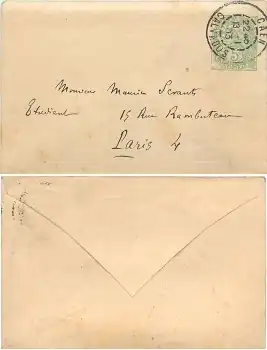 CAEN
CALVADOS
5
Monsieur Maurice
Etudiant 15 Rue Rambuteau
Paris 4